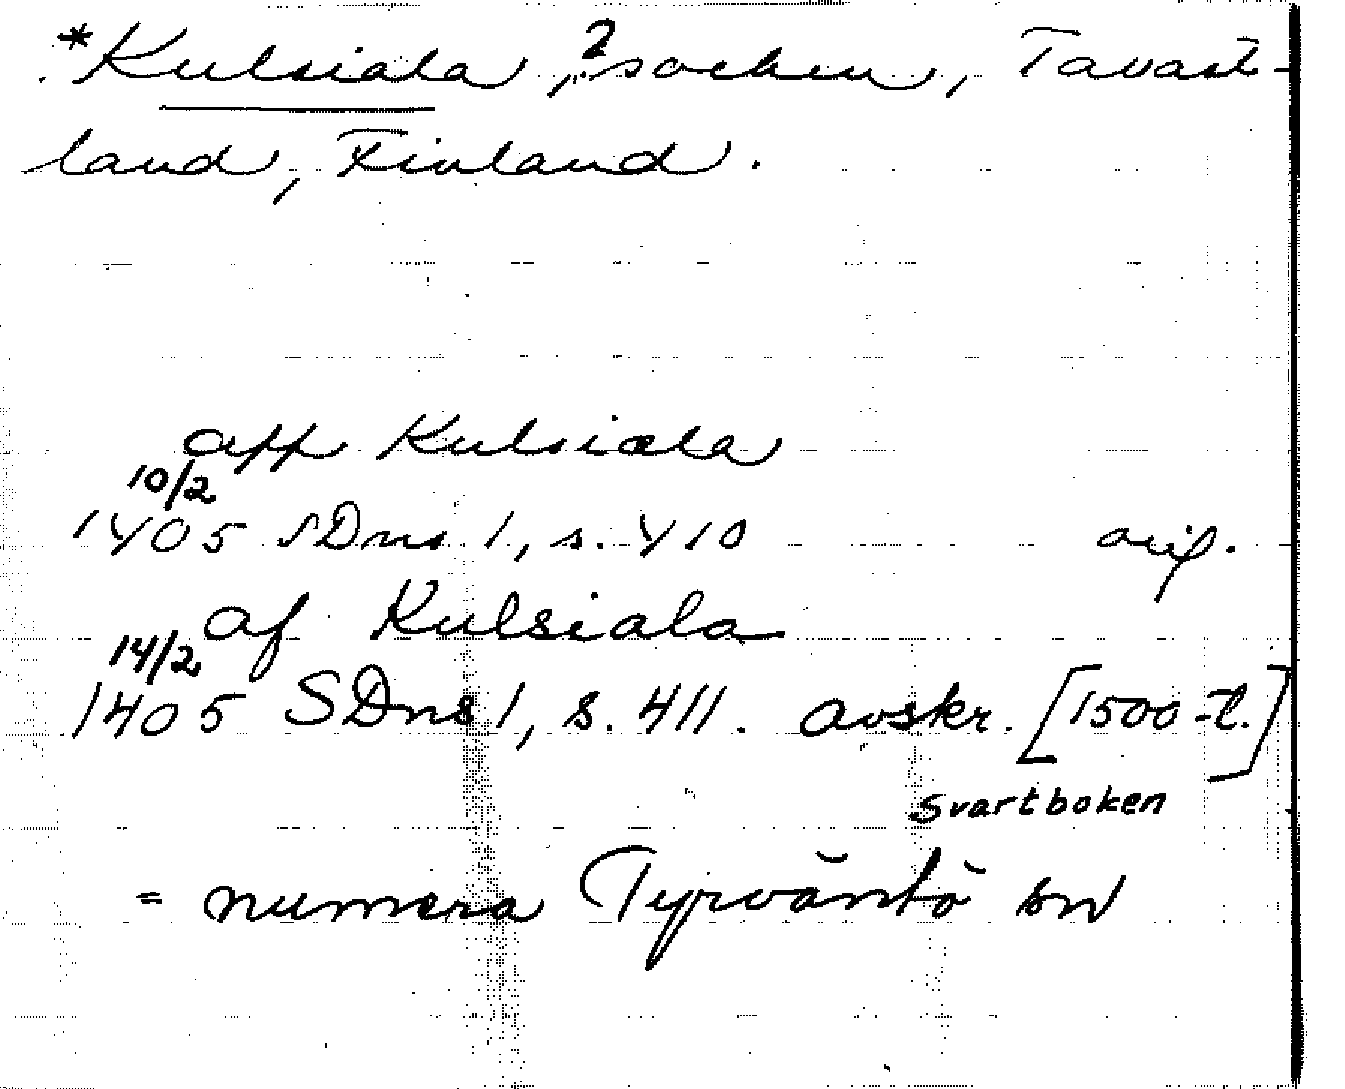 *Kulsiala, ? socken, Tavast-
land, Finland.
aff Kulsiala
10/2
1405 SDns 1, s. 410 orig.
af Kulsiala
14/2
1405 SDns 1, s. 411. avskr. [1500-t.]
Svartboken
= numera Tyrväntö sn